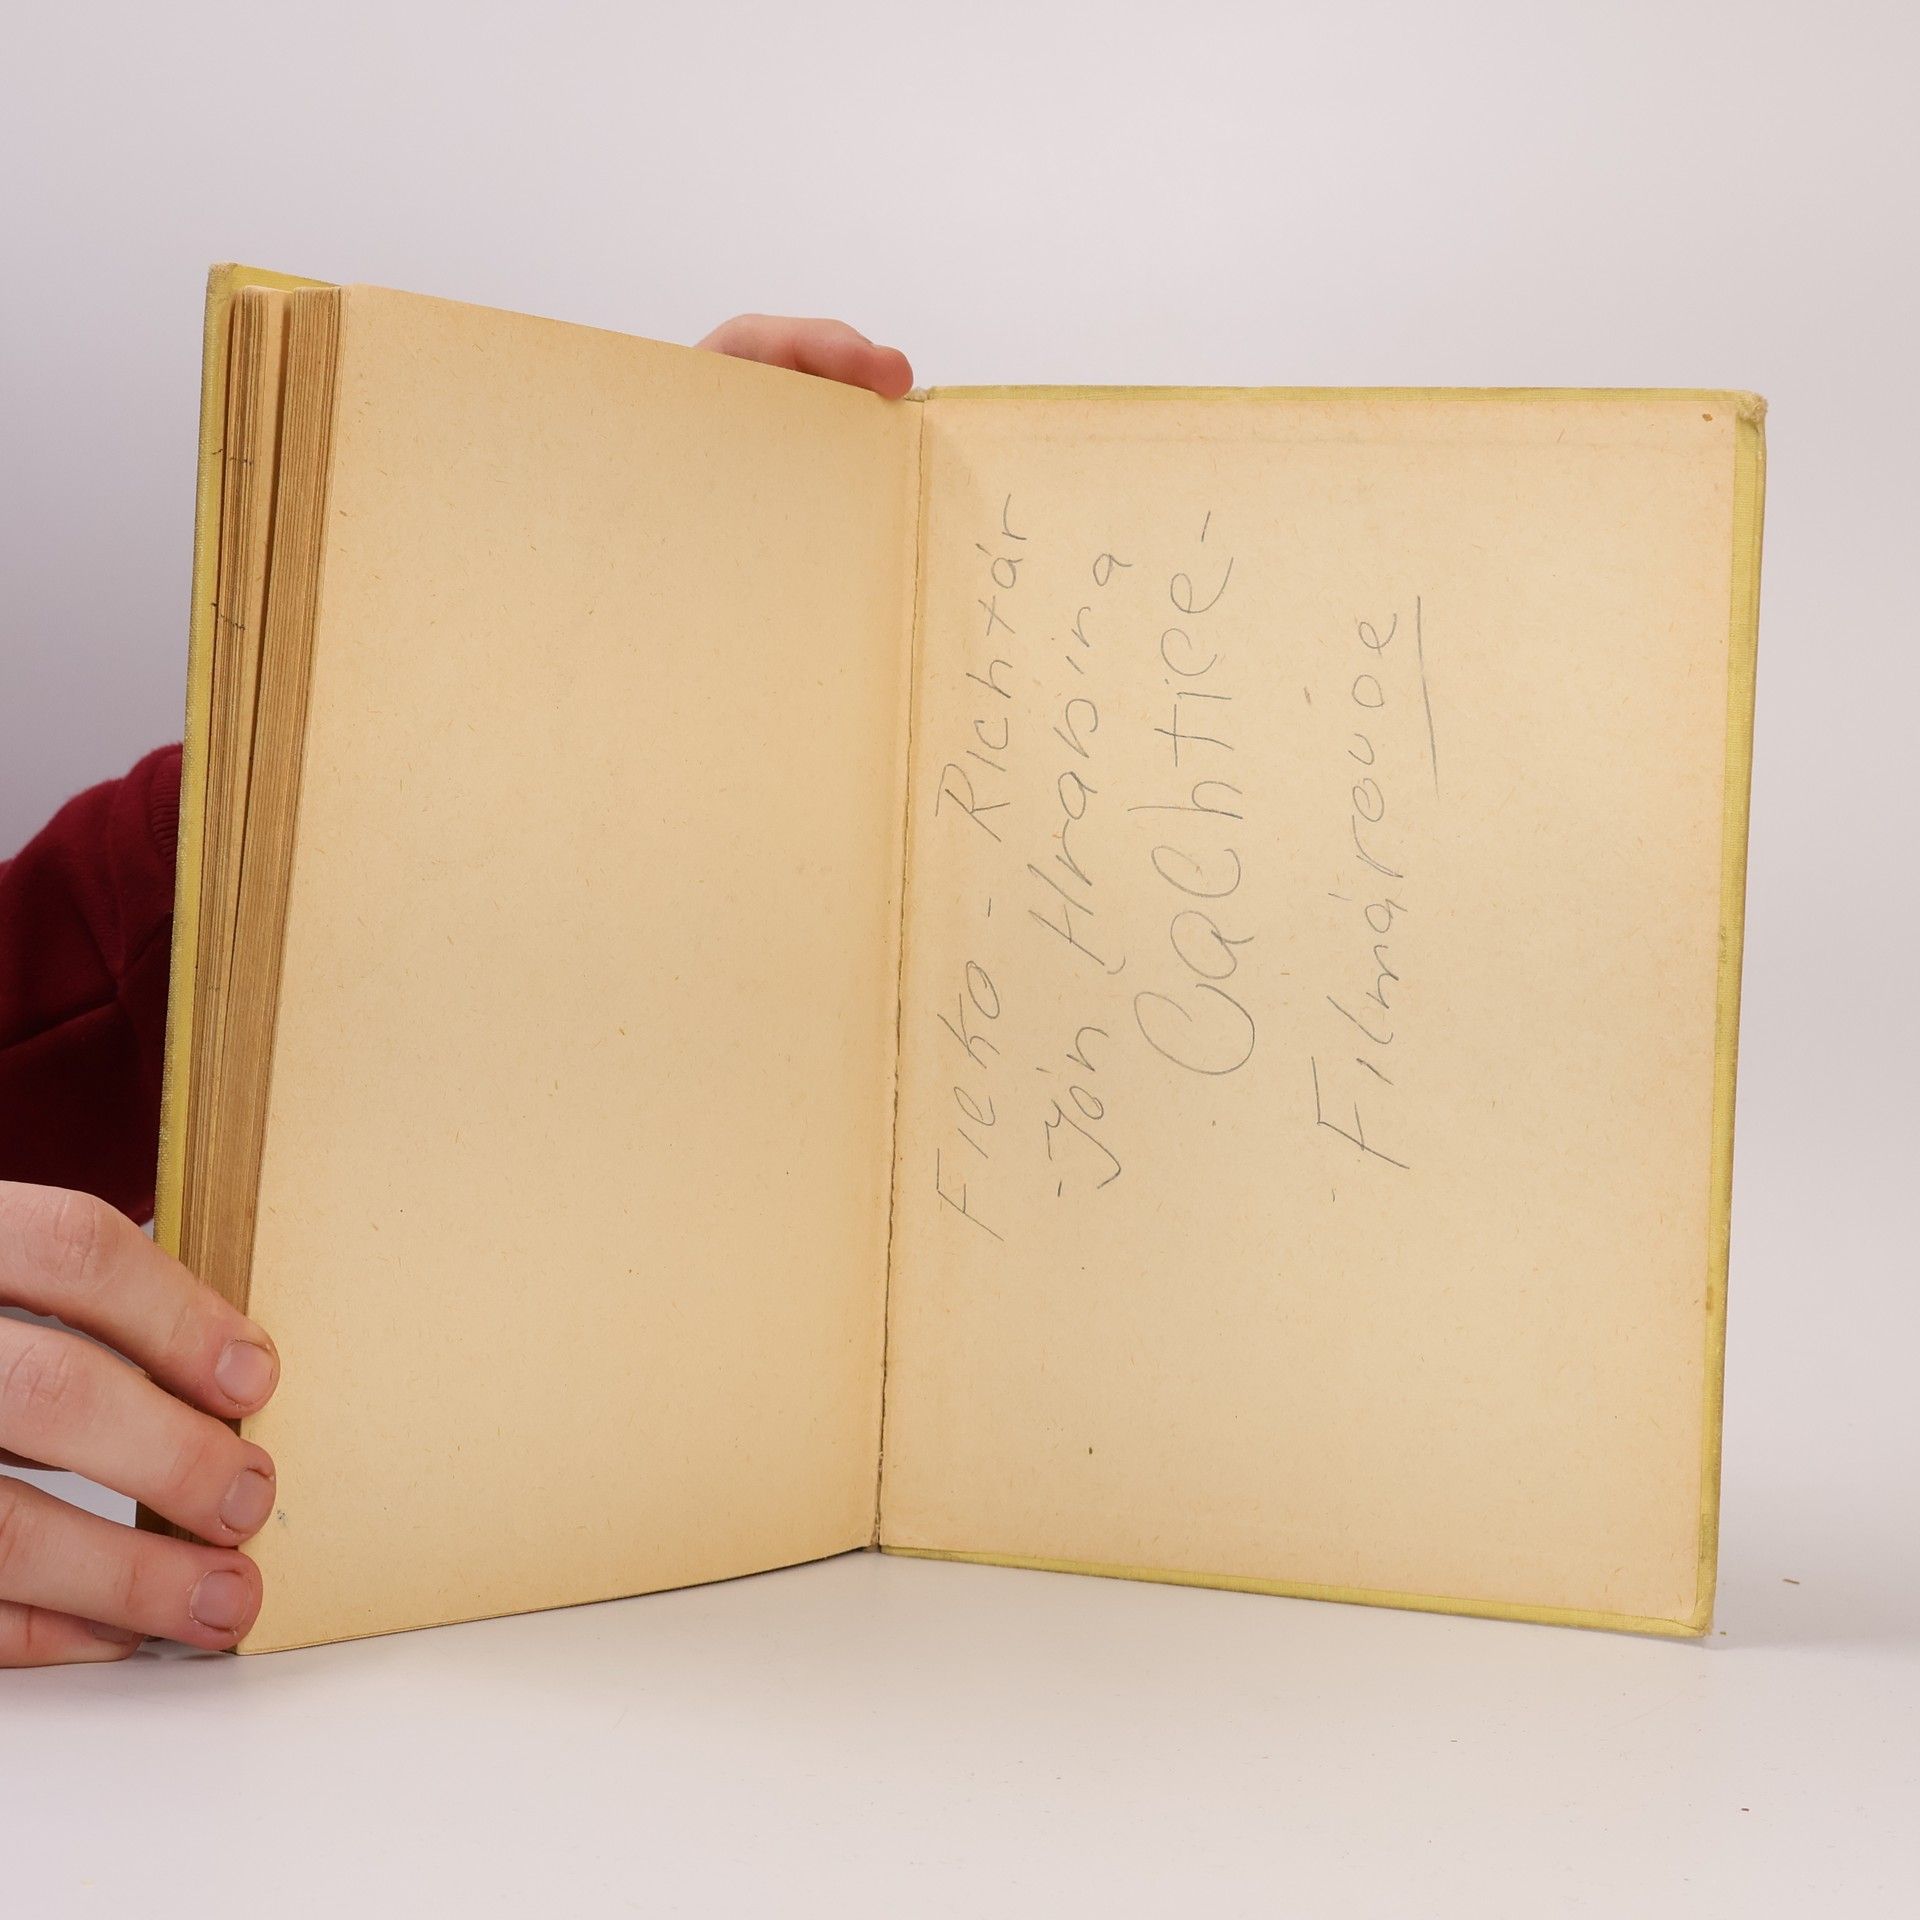 Ficko - Richtár
- Ján Hrabina
CaChtice -
Filmárovoe